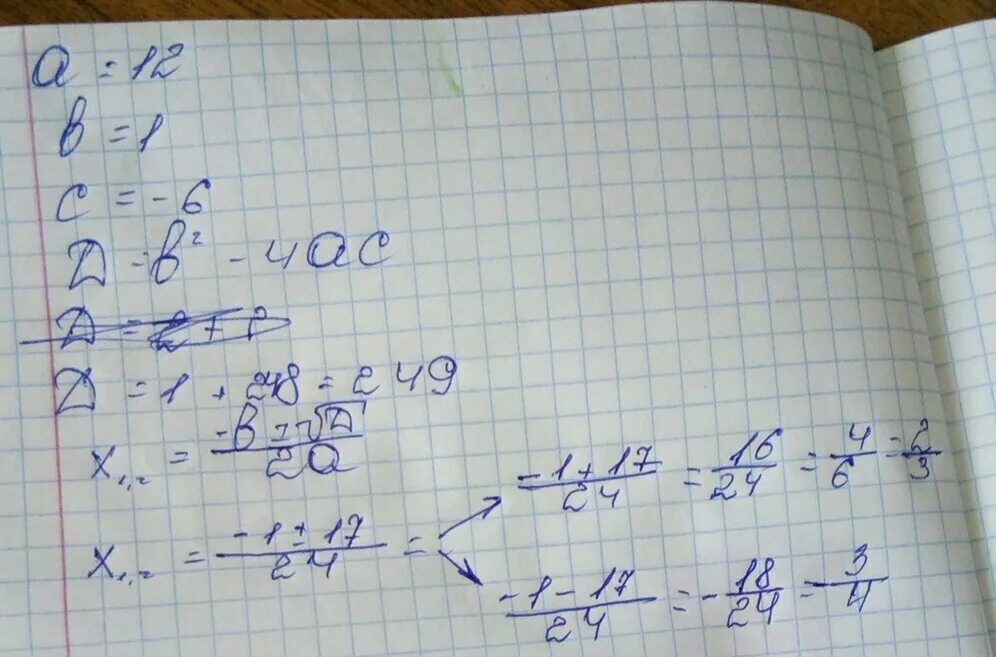 a = 12
b = 1
c = -6
D = b² - 4ac
D = 1 + 248 = 249
x₁,₂ = (-b ± √D)/(2a)
x₁,₂ = (-1 ± 17)/24 =
(-1 + 17)/24 = 16/24 = 4/6 = 2/3
(-1 - 17)/24 = -18/24 = -3/4